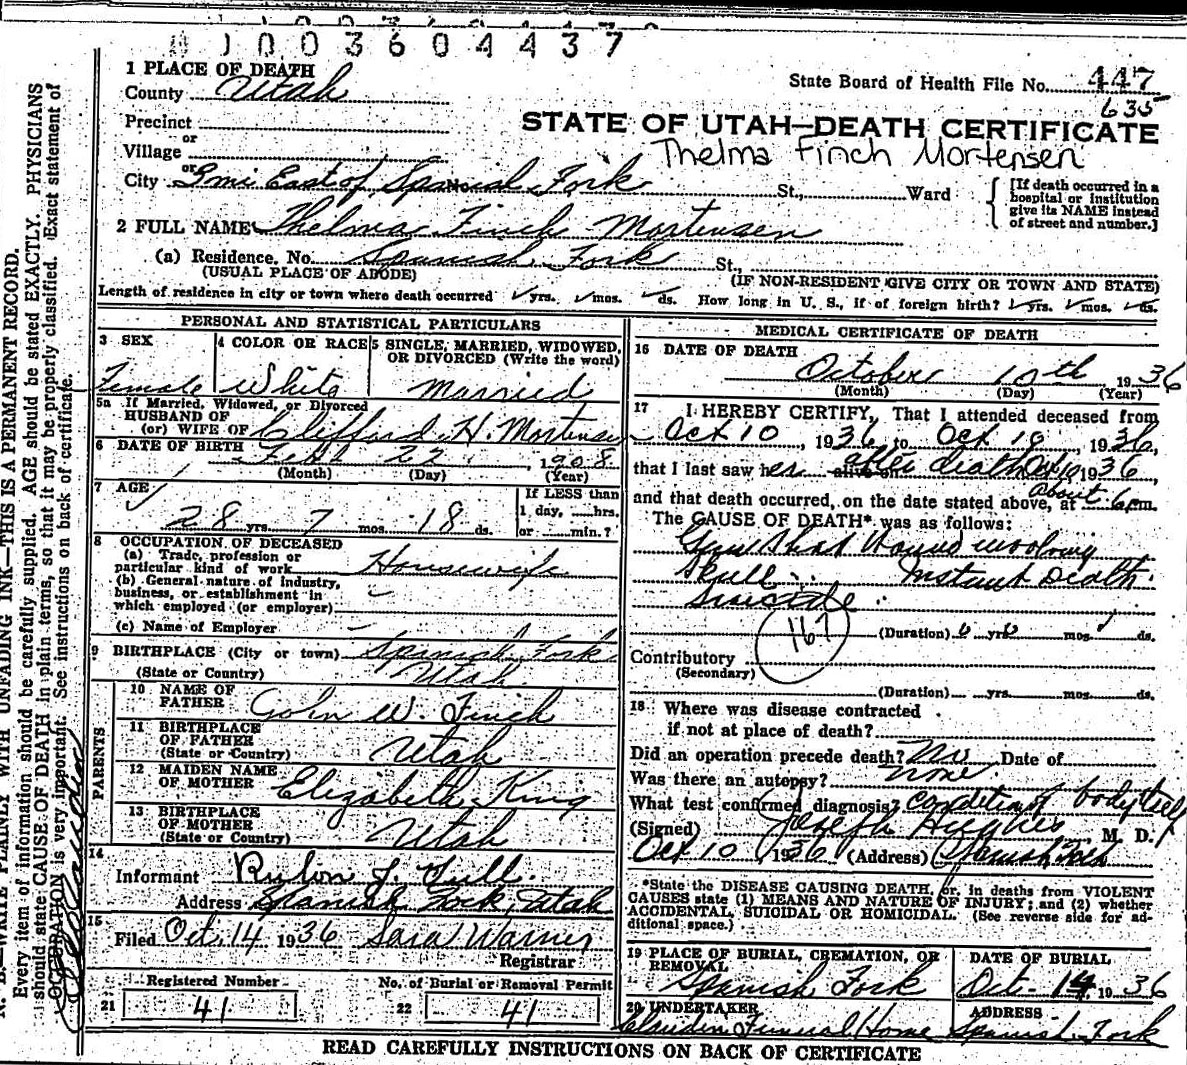 1003604437
1 PLACE OF DEATH
County Utah
State Board of Health File No. 447
635
Precinct
or
Village
STATE OF UTAH—DEATH CERTIFICATE
Thelma Finch Mortensen
or
City 3 mi East of Spanish Fork No. St., Ward
[If death occurred in a hospital or institution give its NAME instead of street and number.]
2 FULL NAME Thelma Finch Mortensen
(a) Residence. No. Spanish Fork St.,
(USUAL PLACE OF ABODE) (IF NON-RESIDENT GIVE CITY OR TOWN AND STATE)
Length of residence in city or town where death occurred yrs. mos. ds. How long in U. S., if of foreign birth? yrs. mos. ds.
PERSONAL AND STATISTICAL PARTICULARS
3 SEX
Female
4 COLOR OR RACE
White
5 SINGLE, MARRIED, WIDOWED,
OR DIVORCED (Write the word)
Married
5a If Married, Widowed, or Divorced
HUSBAND OF
(or) WIFE OF Clifford H. Mortensen
6 DATE OF BIRTH Feb 22, 1908
(Month) (Day) (Year)
7 AGE
28 yrs. 7 mos. 18 ds.
If LESS than
1 day, hrs.
or min.?
8 OCCUPATION OF DECEASED
(a) Trade, profession or
particular kind of work Housewife
(b) General nature of industry,
business, or establishment in
which employed (or employer)
(c) Name of Employer
9 BIRTHPLACE (City or town) Spanish Fork
(State or Country) Utah
PARENTS
10 NAME OF
FATHER John W. Finch
11 BIRTHPLACE
OF FATHER
(State or Country) Utah
12 MAIDEN NAME
OF MOTHER Elizabeth King
13 BIRTHPLACE
OF MOTHER
(State or Country) Utah
14
Informant
Address Spanish Fork, Utah
15
Filed Oct. 14 1936 Sara Warner
Registrar
Registered Number
21 41
No. of Burial or Removal Permit
22 41
MEDICAL CERTIFICATE OF DEATH
16 DATE OF DEATH
October 10th, 1936
(Month) (Day) (Year)
17 I HEREBY CERTIFY, That I attended deceased from
Oct 10, 1936 to Oct 10, 1936,
that I last saw her alive on after death Oct 10 1936,
and that death occurred, on the date stated above, at about 6 pm.
The CAUSE OF DEATH* was as follows:
Gun Shot Wound involving
Skull. Instant Death.
Suicide
167
(Duration) 0 yrs. 0 mos. ds.
Contributory
(Secondary)
(Duration) yrs. mos. ds.
18 Where was disease contracted
if not at place of death?
Did an operation precede death? No Date of
Was there an autopsy? none
What test confirmed diagnosis? condition of body itself
(Signed) Joseph Hughes M. D.
Oct 10, 1936 (Address) Spanish Fork
*State the DISEASE CAUSING DEATH, or, in deaths from VIOLENT
CAUSES state (1) MEANS AND NATURE OF INJURY; and (2) whether
ACCIDENTAL, SUICIDAL OR HOMICIDAL. (See reverse side for ad-
ditional space.)
19 PLACE OF BURIAL, CREMATION, OR
REMOVAL
Spanish Fork
DATE OF BURIAL
Oct. 14, 1936
20 UNDERTAKER
Claudin Funeral Home
ADDRESS
Spanish Fork
READ CAREFULLY INSTRUCTIONS ON BACK OF CERTIFICATE
N. B.—WRITE PLAINLY WITH UNFADING INK—THIS IS A PERMANENT RECORD.
Every item of information should be carefully supplied. AGE should be stated EXACTLY. PHYSICIANS
should state CAUSE OF DEATH in plain terms, so that it may be properly classified. Exact statement of
OCCUPATION is very important. See instructions on back of certificate.